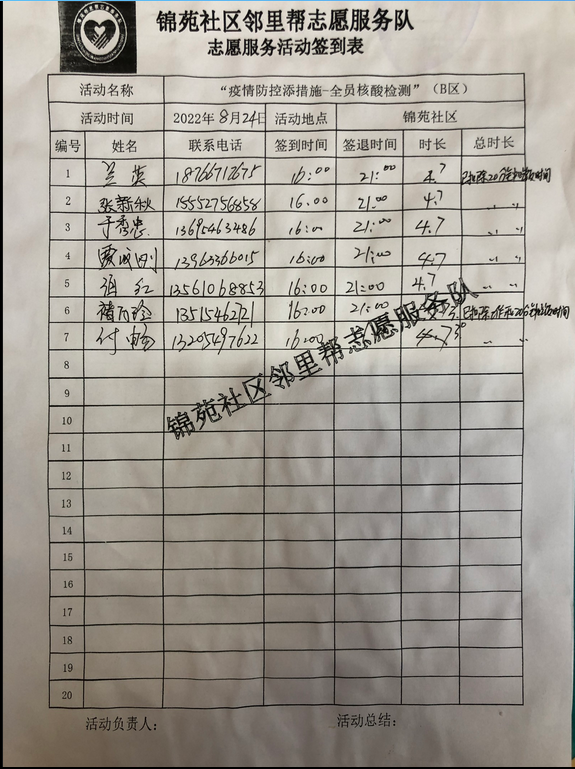 锦苑社区邻里帮志愿服务队
志愿服务活动签到表
活动名称 “疫情防控添措施-全员核酸检测”（B区）
活动时间 2022年8月24日 活动地点 锦苑社区
编号 姓名 联系电话 签到时间 签退时间 时长 总时长
1 兰英 18766712675 16:00 21:00 4.7 已扣除20分钟
2 张新秋 15552756858 16.00 21:00 4.7 〃 〃
3 于秀忠 13695463486 16:00 21:00 4.7 〃 〃
4 贾成刚 13963366015 16:00 21:00 4.7 〃 〃
5 红 13561068853 16:00 21:00 4.7 〃 〃
6 13515462721 16:00 21:00 已扣除
7 付 13205497622 16:00 4.7 〃 〃
锦苑社区邻里帮志愿服务队
8
9
10
11
12
13
14
15
16
17
18
19
20
活动负责人： 活动总结：